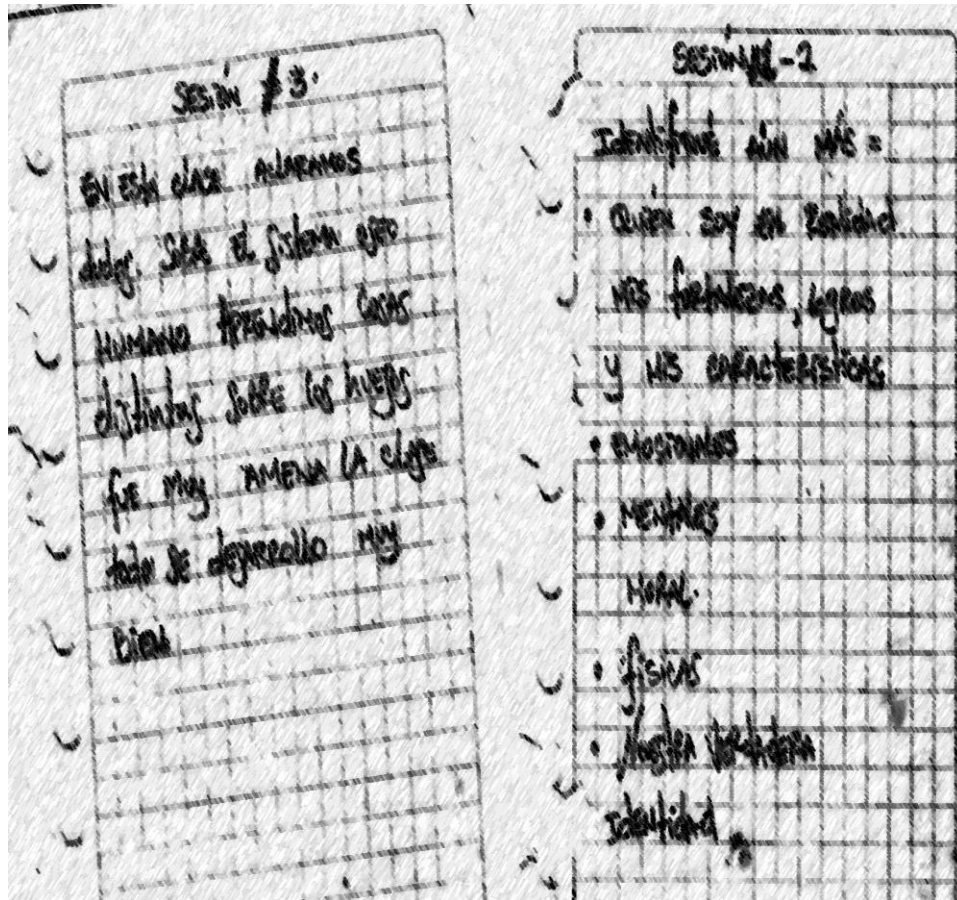 SESIÓN # 3.
EN ESTA CLASE ACLARAMOS
dudas. SOBRE EL sistema oseo
HUMANO APRENDIMOS COSAS
distintas SOBRE los huesos
fue muy AMENA LA clase
todo SE desarrollo muy
BIEN
SESION -2
Identifiqué AÚN MÁS =
• QUIÉN SOY EN Realidad
MIS fortalezas, logros
y MIS CARACTERISTICAS
• EMOSIONALES
• MENTALES
MORAL.
• físicas
• Nuestra VERDADERA
Identidad